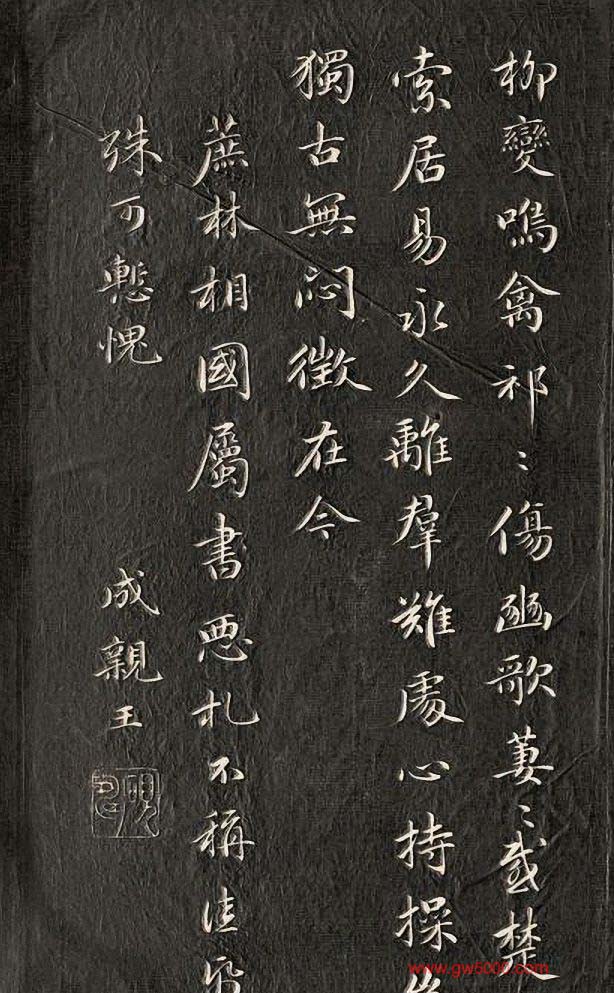 柳變鳴禽祁〻傷豳歌萋〻感楚
索居易永久離群難處心持操
獨古無悶徵在今
蔗林相國屬書惡札不稱佳
殊可慙愧
成親王
www.gw5000.com